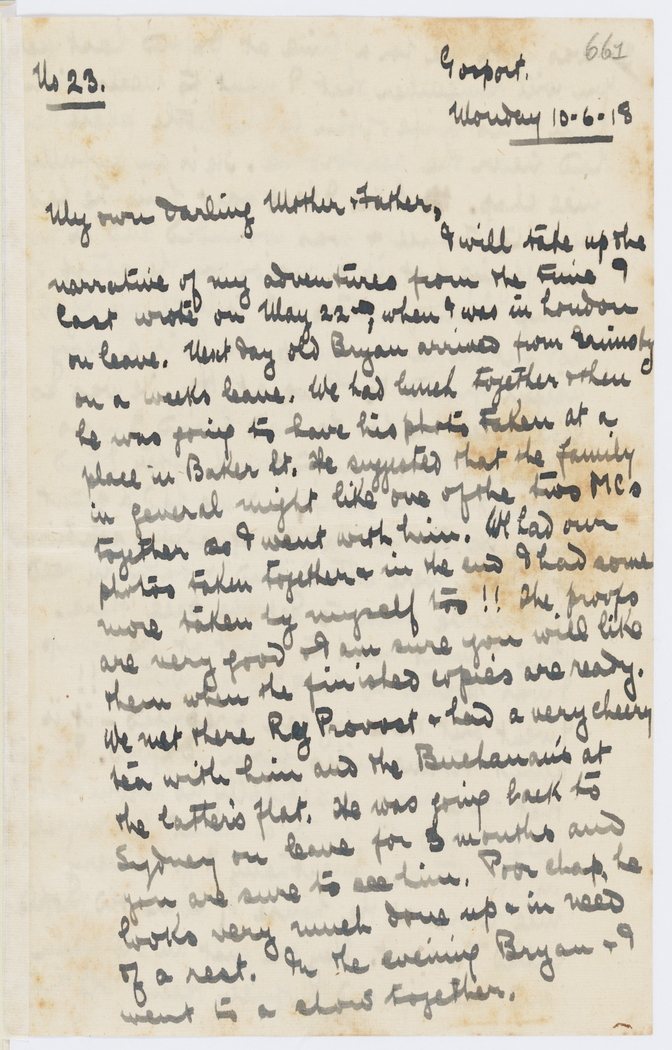 661
No 23.
Gosport.
Monday 10-6-18
My own darling Mother & Father,
I will take up the
narrative of my adventures from the time I
last wrote on May 22nd, when I was in London
on leave. Next day old Bryan arrived from Grimsby
on a weeks leave. We had lunch together & then
he was going to have his photo taken at a
place in Baker St. He suggested that the family
in general might like one of the two MCs
together so I went with him. We had our
photos taken together & in the end I had some
more taken by myself too!! The proofs
are very good & I am sure you will like
them when the finished copies are ready.
We met there Reg Provost & had a very cheery
tea with him and the Buchanan's at
the latter's flat. He was going back to
Sydney on leave for 3 months and
you are sure to see him. Poor chap, he
looks very much done up & in need
of a rest. In the evening Bryan & I
went to a show together.